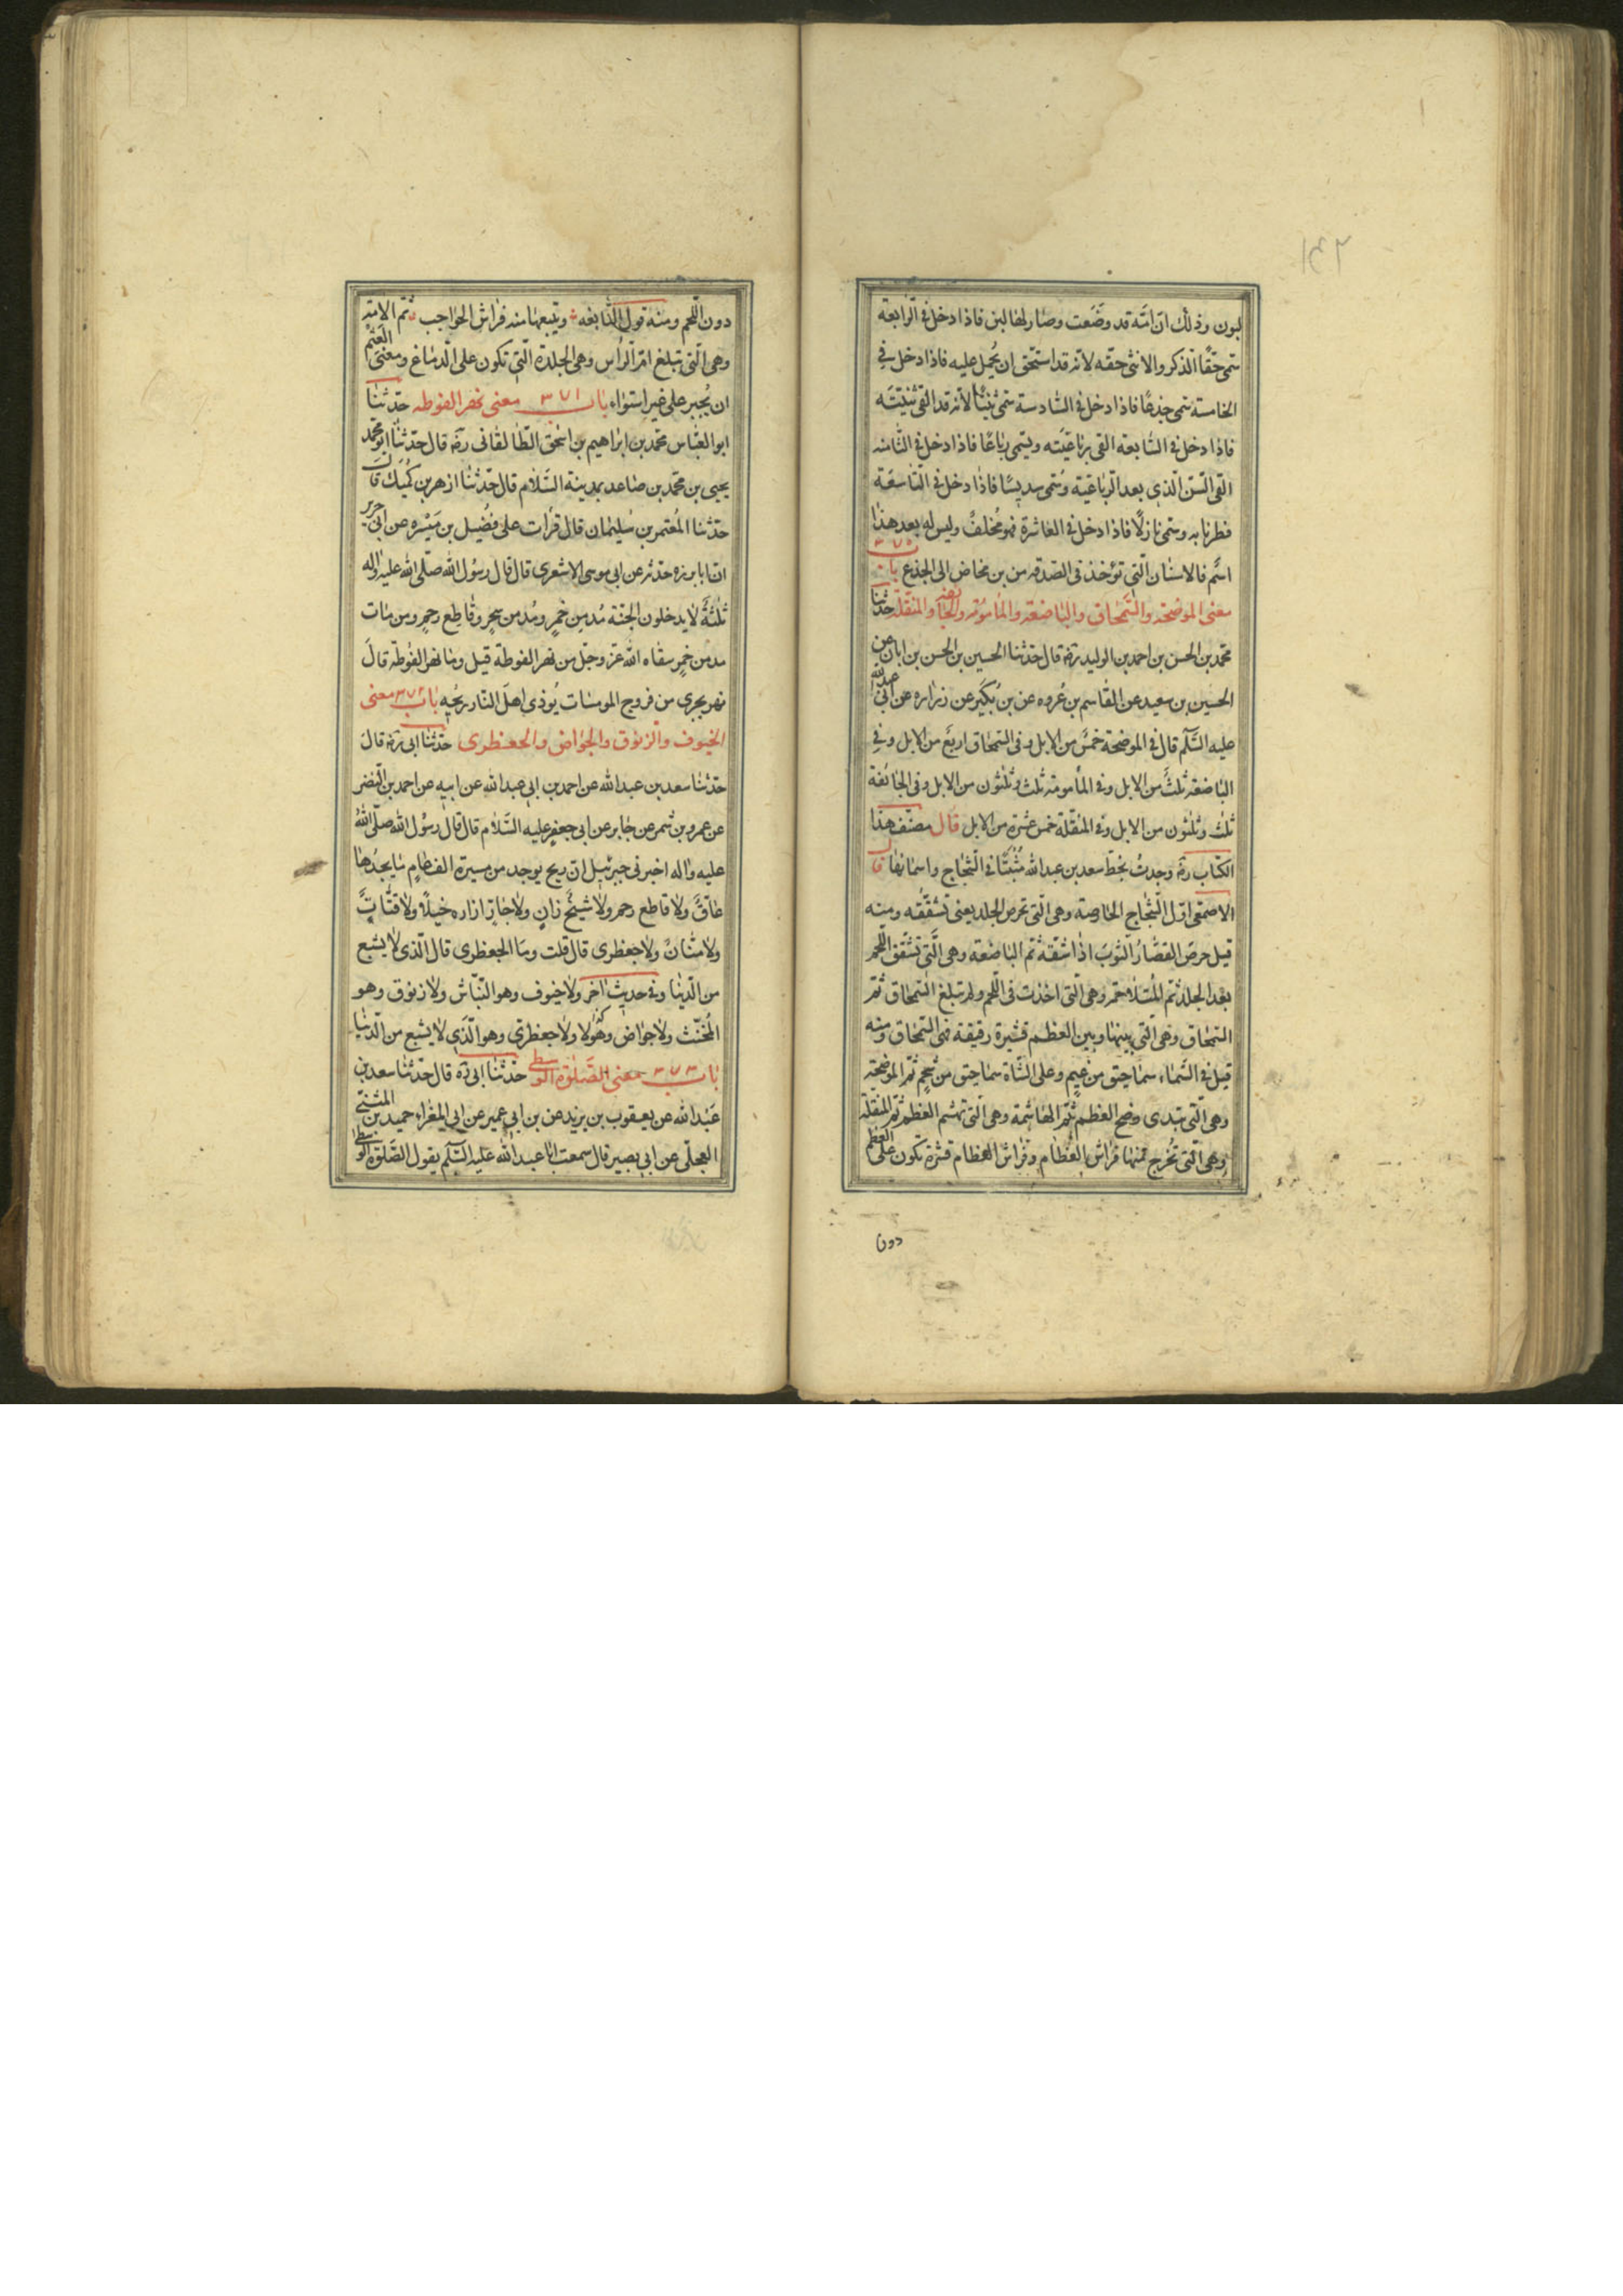 لبون وذلك انّ امّه قد وضَعت وصٰار لهٰا لبن فاذا دخل فى الرّابعة
سمّى حقّاً الّذكر والانثى حقّه لانّه قد استحّق ان يُحمل عليه فاذا دخل فى
الخامسة سمّى جذعًا فاذا دخل فى السّادسة سمّى ثنيّاً لانّه قد القى ثنيّته
فاذا دخل فى السّٰابعة القى ربٰاعيَته ويسمّى ربٰاعًا فاذا دخل فى الثّامنه
القى السّنّ الّذى بعد الرّبٰاعيّة وسُمّى سديسًا فاذا دخل فى التّاسعة
فطر نابه وسمّى بٰازلًا فاذا دخل فى العٰاشرة فهو مُخلفٌ وليس له بعد هذٰا
اسمٌ فالاسنٰان الّتى تؤخذ فى الصّدقه من بن مخٰاض الى الجذع باب ٣٧٠
معنى الموضحة والسّمحٰاق والبٰاضعة والمأمُومة والجٰائفة والمنقّلة حدّثنا
محمّد بن الحسن بن احمد بن الوليد رَه قال حدّثنا الحسين بن الحسن بن ابان عن
الحسين بن سعيد عن القٰاسم بن عُروه عن بن بُكَير عن زرٰاره عن ابى عبدالله
عليه السّلٰم قال فى الموضحة خمسٌ من الابل وفى السّمحٰاق اربعَ من الابل وفى
البٰاضعة ثلثَ من الابل وفى المأمومة ثلث وثلثون من الابل وفى الجٰائفة
ثلث وثلثون من الابل وفى المنقّلة خمس عشرة من الابل قال مصنّف هذا
الكتٰاب رَه وجدتُ بخطّ سعد بن عبدالله مُثبتًا فى الشّجٰاج واسمٰائهٰا قال
الاصمعى اوّل الشّجٰاج الحٰارصة وهى الّتى تحرص الجلد يعنى تشقّقه ومنه
قيل حرصَ القصّٰارُ الثّوبَ اذٰا شقّه ثمّ البٰاضعة وهى الّتى تشقّق اللّحم
بعد الجلد ثمّ المُتلٰاحمه وهى الّتى اخذت فى اللّحم ولم تبلغ السّمحاق ثمّ
السّمحٰاق وهى الّتى بينهٰا وبين العظم قشيرة رقيقة فهى السّمحٰاق ومنه
قيل فى السّمٰاء سمٰاحيق من غيمٍ وعلى الشّاة سمٰاحيق من شحمٍ ثمّ الموضحة
وهى الّتى تبدى وضح العظم ثمّ الهٰاشمة وهى الّتى تهشم العظم ثمّ المنقّلة
وهى الّتى تُخرج منهٰا فرٰاش العظٰام وفرٰاش العظٰام قشرة تكون على العظم
دون
دون اللّحم ومنه قول النّٰابغه ويتبعهٰا منه فرٰاش الحوٰاجب ثمّ الامّة
وهى الّتى تبلغ امّ الرّأس وهى الجلدة الّتى تكون على الدّمٰاغ ومعنى العثم
ان يُجبر على غير استوٰاء بٰاب ٣٧١ معنى نهر الغوطه حدّثنا
ابو العبّاس محمّد بن ابرٰاهيم بن اسحٰق الطّٰالقٰانى رَه قال حدّثنا ابو محمّد
يحيى بن محمّد بن صٰاعد بمدينة السّلٰام قال حدّثنا ازهر بن كُميك قال
حدّثنا المُعتمر بن سُليمٰان قال قرأت على فُضيل بن مَيْسره عن ابى حرير
انّ ابا برزه حدّثه عن ابى موسى الاشعرى قال قال رسُول الله صلّى الله عليه وٰاله
ثلٰثةٌ لٰا يدخلون الجنّة مُدمن خمرٍ ومُدمن سحرٍ وقٰاطع رحمٍ ومن مٰات
مدمن خمرٍ سقٰاه الله عزّ وجلّ من نهر الغوطة قيل ومٰا نهر الغوطة قالَ
نهر يجرى من فروج المومسٰات يُوذى اهلَ النّار ريحُه بٰاب ٣٧٢ معنى
الخيوف والزّنوق والجوٰاض والجعظرى حدّثنا ابى رَه قالَ
حدّثنا سعد بن عبدالله عن احمد بن ابى عبدالله عن ابيه عن احمد بن النّضر
عن عمرو بن شمر عن جٰابر عن ابى جعفرٍ عليه السّلٰام قال قال رسُول الله صلّى اللهُ
عليه وٰاله اخبرنى جبرئيل انّ ريح يوجد من مسيرة الف عٰامٍ مٰا يجدُهٰا
عٰاقٌّ ولٰا قٰاطع رحم ولٰا شيخٌ زٰانٍ ولٰا جٰارّ ازاره خيلٰاً ولٰا قتّٰاتٌ
ولٰا منّٰانٌ ولٰا جعظرى قال قلت ومٰا الجعظرى قال الّذى لٰا يشبع
من الدّنيٰا وفى حديث اٰخر ولٰا خيوف وهو النّبّٰاش ولٰا زنوق وهو
المُخنّث ولٰا جوٰاض وهٰؤلٰا ولٰا جعظرىّ وهو الّذى لٰا يشبع من الدّنيا
بٰاب ٣٧٣ معنى الصّلوٰة الوُسطى حدّثنا ابى رَه قال حدّثنا سعد بن
عَبدالله عن يعقوب بن يزيد عن بن ابى عمير عن ابى المغرٰاء حميد بن المثنّى
العجلّى عن ابى بصير قال سمعت ابٰا عبدالله عليه السّلٰم يقول الصّلوٰة الوسطى